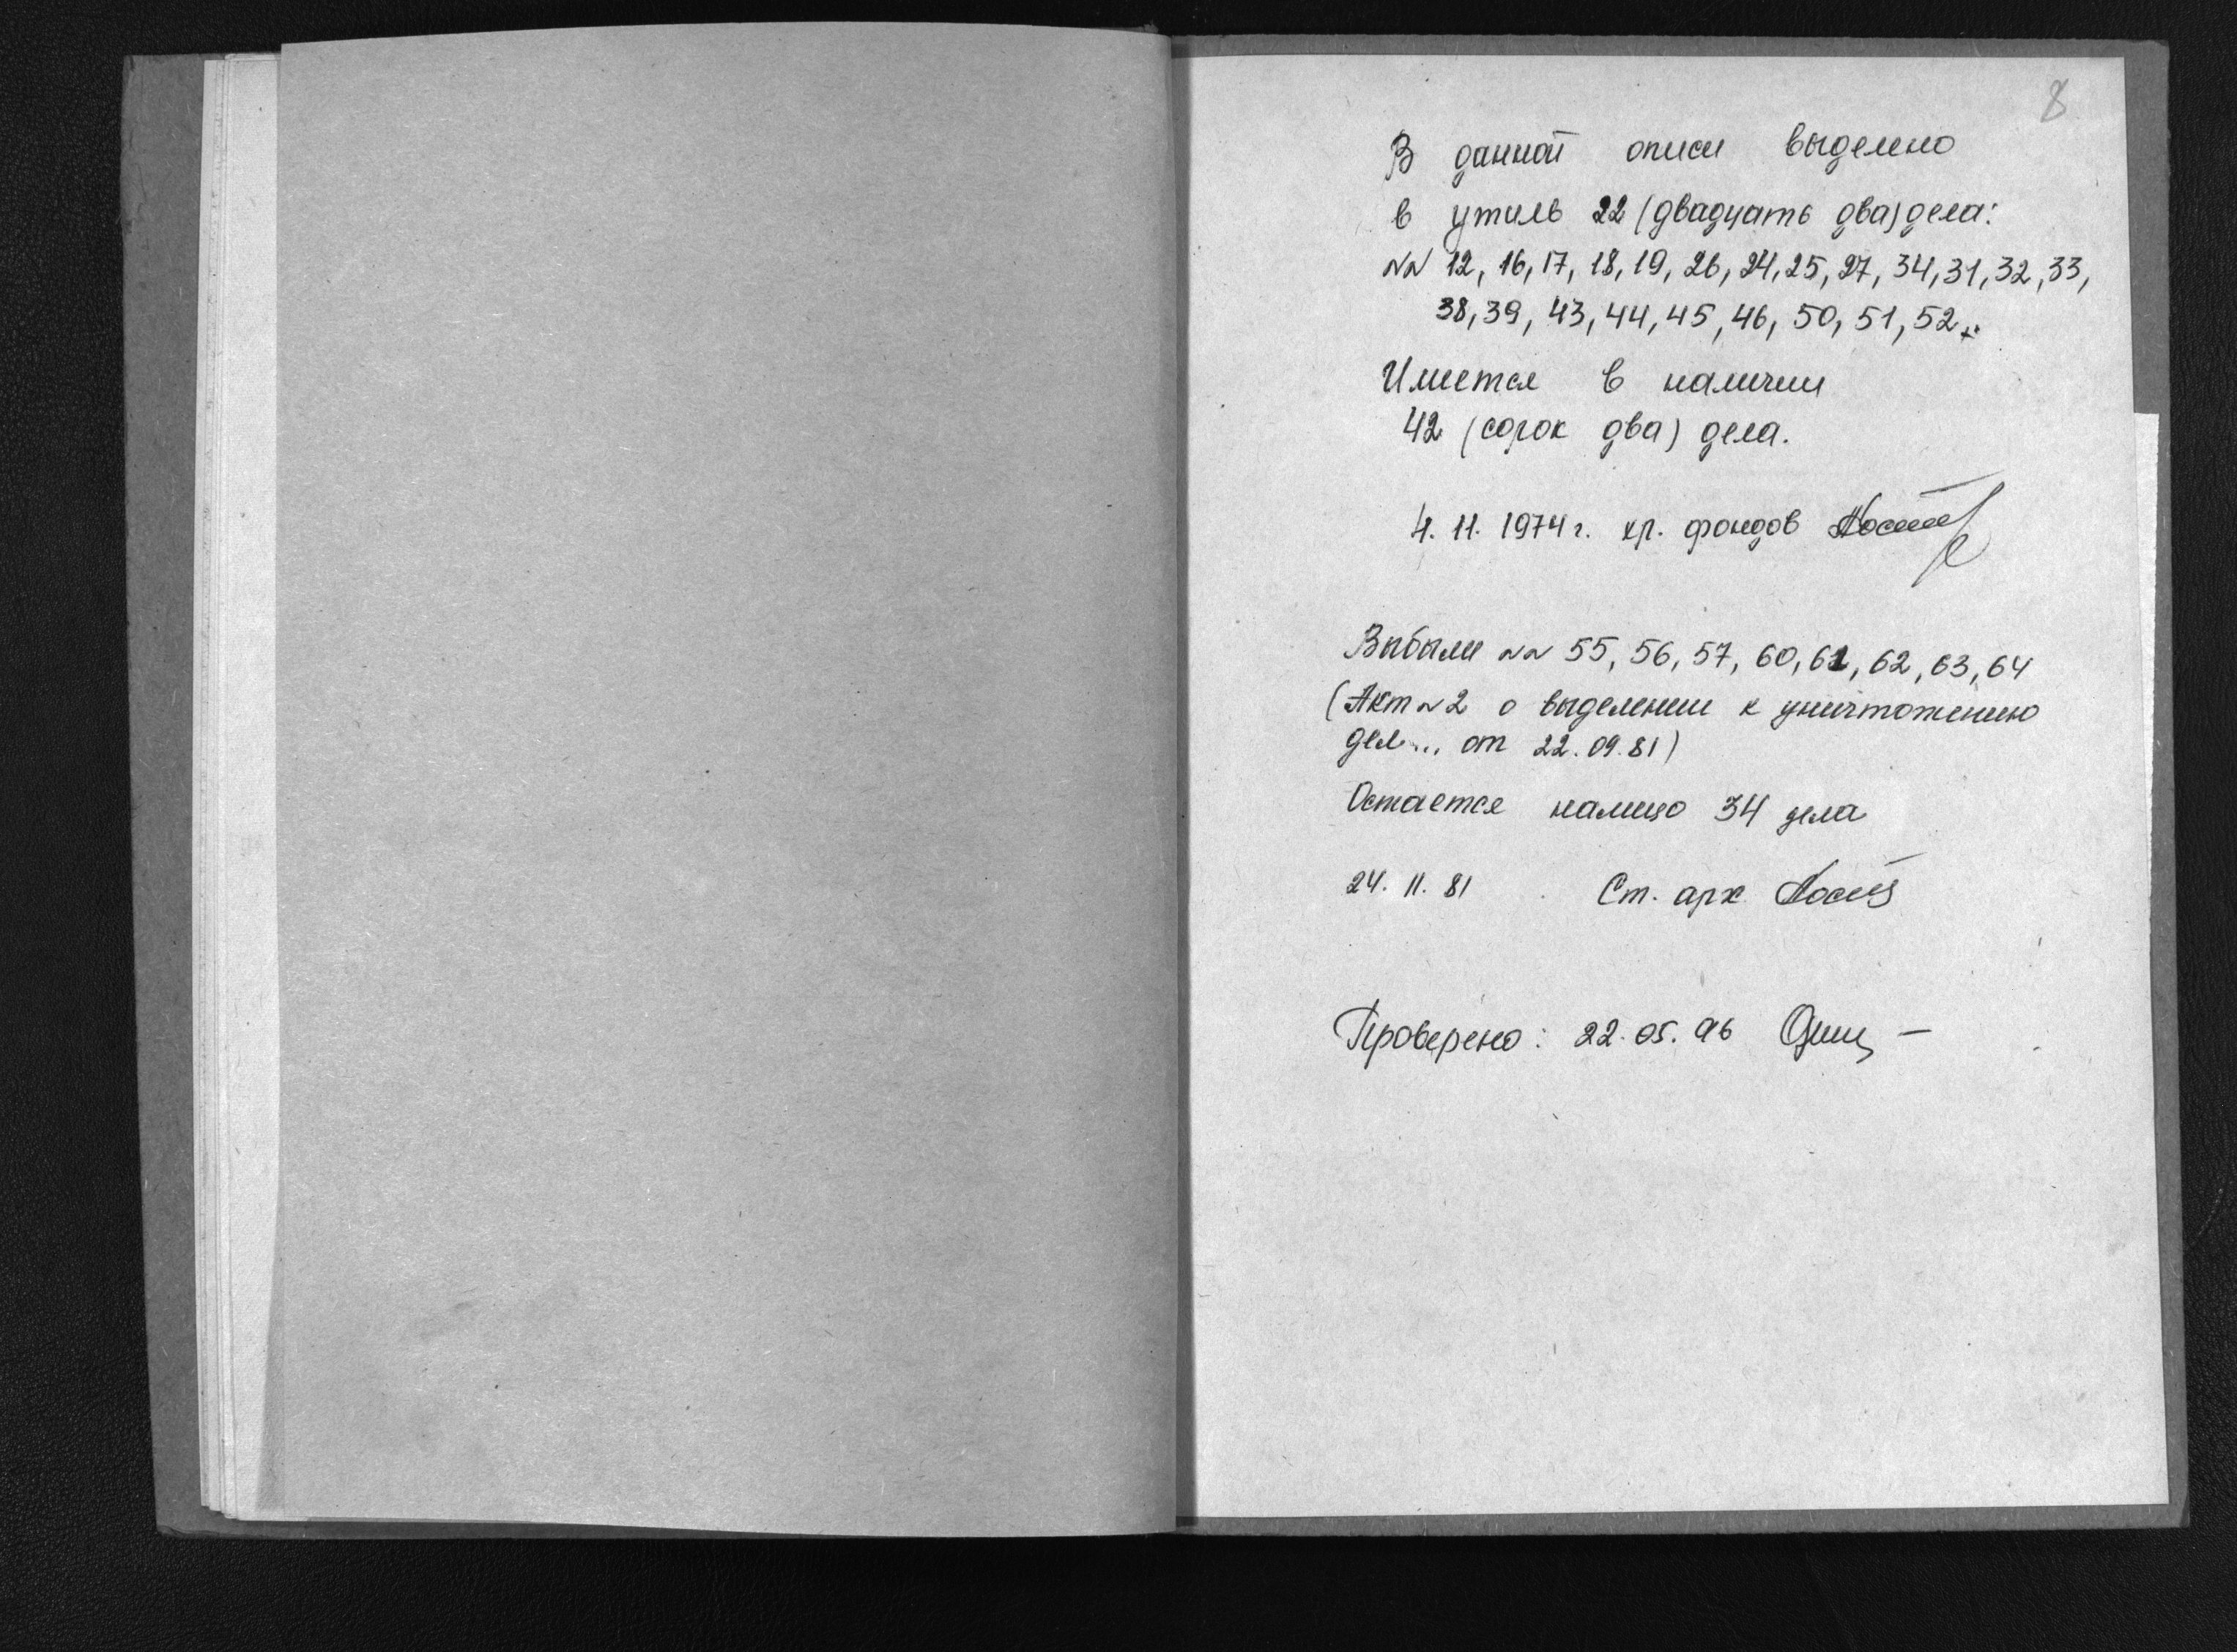 8
В данной описи выделено
в утиль 22 (двадцать два) дела:
NN 12, 16, 17, 18, 19, 26, 24, 25, 27, 34, 31, 32, 33,
38, 39, 43, 44, 45, 46, 50, 51, 52.
Имеется в наличии
42 (сорок два) дела.
4. 11. 1974 г. хр. фондов
Выбыли NN 55, 56, 57, 60, 61, 62, 63, 64
(Акт N 2 о выделении к уничтожению
дел... от 22.09.81)
Остается налицо 34 дела
24. 11. 81 Ст. арх
Проверено: 22.05.96